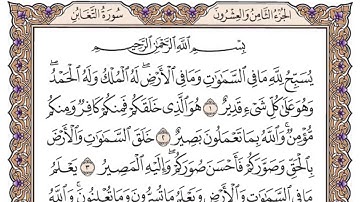 الجزء الثامن والعشرون
سورة التغابن
بِسْمِ ٱللَّهِ ٱلرَّحْمَٰنِ ٱلرَّحِيمِ
يُسَبِّحُ لِلَّهِ مَا فِى ٱلسَّمَٰوَٰتِ وَمَا فِى ٱلْأَرْضِ ۖ لَهُ ٱلْمُلْكُ وَلَهُ ٱلْحَمْدُ ۖ
وَهُوَ عَلَىٰ كُلِّ شَىْءٍ قَدِيرٌ ١ هُوَ ٱلَّذِى خَلَقَكُمْ فَمِنكُمْ كَافِرٌ وَمِنكُم
مُّؤْمِنٌ ۚ وَٱللَّهُ بِمَا تَعْمَلُونَ بَصِيرٌ ٢ خَلَقَ ٱلسَّمَٰوَٰتِ وَٱلْأَرْضَ
بِٱلْحَقِّ وَصَوَّرَكُمْ فَأَحْسَنَ صُوَرَكُمْ ۖ وَإِلَيْهِ ٱلْمَصِيرُ ٣ يَعْلَمُ
مَا فِى ٱلسَّمَٰوَٰتِ وَٱلْأَرْضِ وَيَعْلَمُ مَا تُسِرُّونَ وَمَا تُعْلِنُونَ ۚ وَٱللَّهُ